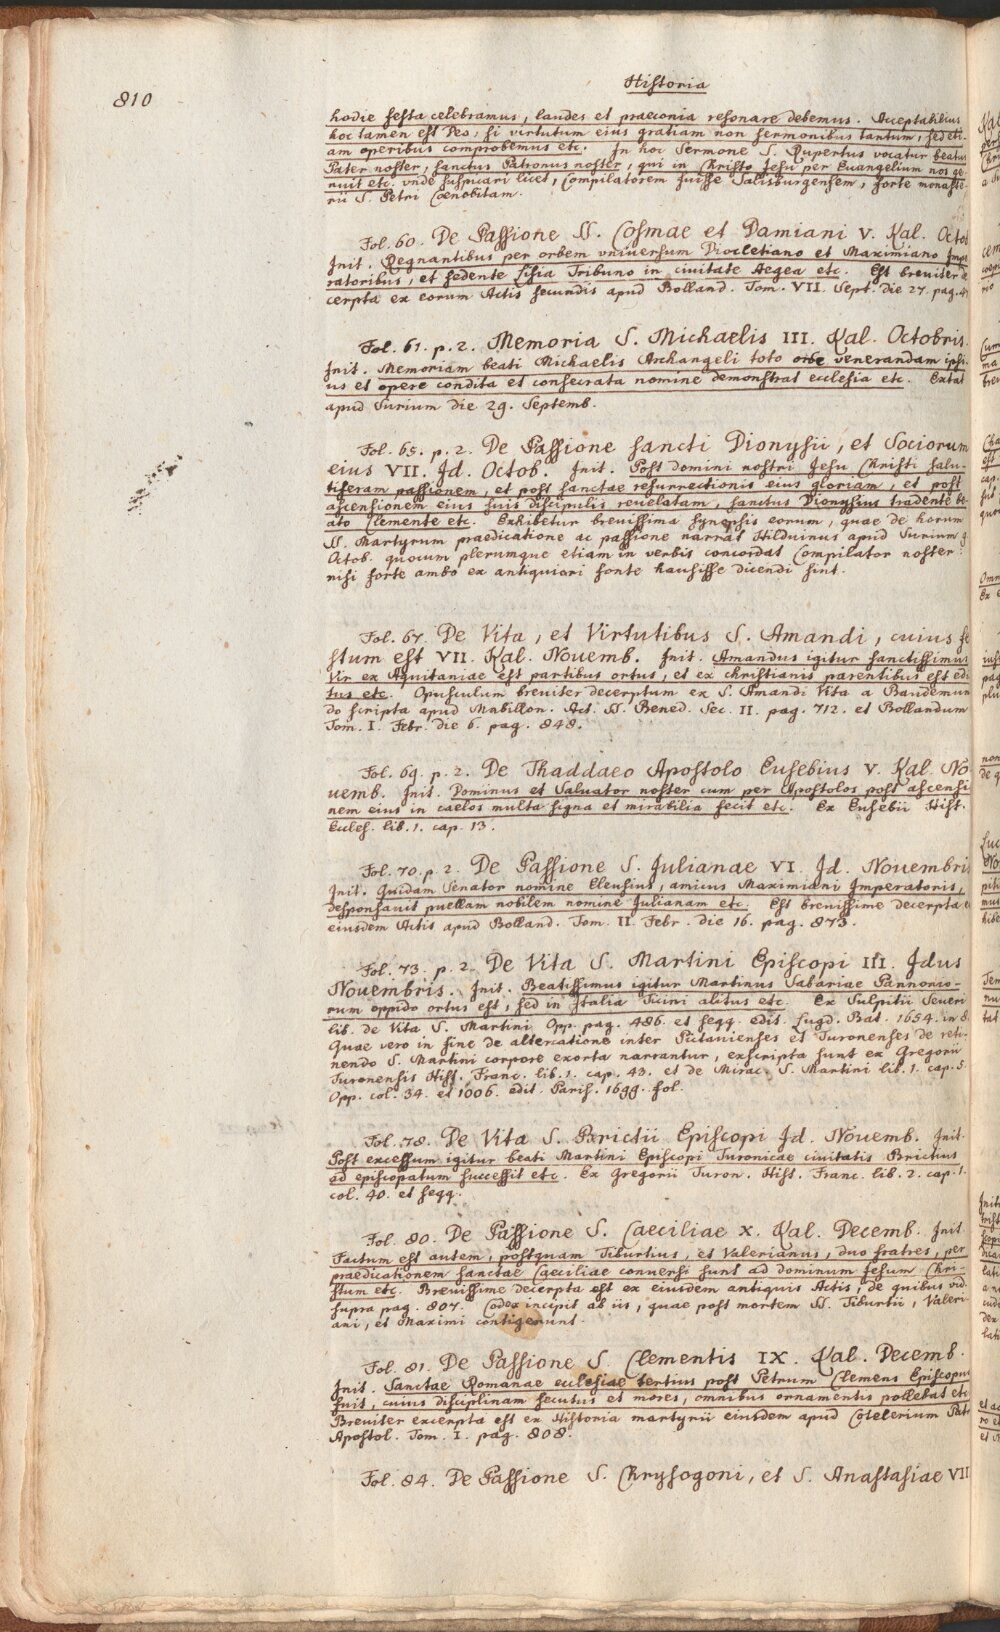 Historia
810
hodie festa celebramus, laudes et praeconia resonare debemus. Acceptabilius
hoc tamen est Deo, si virtutum eius gratiam non sermonibus tantum, sed eti-
am operibus comprobemus etc. In hoc Sermone S. Rupertus vocatur beatus
Pater noster, sanctus Patronus noster, qui in Christo Jesu per Euangelium nos ge-
nuit etc. vnde suspicari licet, Compilatorem fuisse Salisburgensem, forte monaste-
rii S. Petri Coenobitam.
Fol. 60. De Passione SS. Cosmae et Damiani V. Kal. Octob
Init. Regnantibus per orbem vniuersum Diocletiano et Maximiano Impe
ratoribus, et sedente Lisia Tribuno in ciuitate Aegea etc. Est breuiter de
cerpta ex eorum Actis secundis apud Bolland. Tom. VII. Sept. die 27. pag. 4
Fol. 61. p. 2. Memoria S. Michaelis III. Kal. Octobris.
Init. Memoriam beati Michaelis Archangeli toto orbe venerandam ipsi-
us et opere condita et consecrata nomine demonstrat ecclesia etc. Extat
apud Surium die 29. Septemb.
Fol. 65. p. 2. De Passione sancti Dionysii, et Sociorum
eius VII. Id. Octob. Init. Post Domini nostri Jesu Christi salu-
tiferam passionem, et post sanctae resurrectionis eius gloriam, et post
ascensionem eius suis discipulis reuelatam, sanctus Dionysius tradente be-
ato Clemente etc. Exhibetur breuissima synopsis eorum, quae de horum
SS. Martyrum praedicatione ac passione narrat Hilduinus apud Surium 9
Octob. quocum plerumque etiam in verbis concordat Compilator noster:
nisi forte ambo ex antiquiori fonte hausisse dicendi sint.
Fol. 67. De Vita, et Virtutibus S. Amandi, cuius fe
stum est VII. Kal. Nouemb. Init. Amandus igitur sanctissimus
Vir ex Aquitaniae est partibus ortus, et ex christianis parentibus est edi
tus etc. Opusculum breuiter decerptum ex S. Amandi Vita a Baudemun
do scripta apud Mabillon. Act. SS. Bened. Sec. II. pag. 712. et Bollandum
Tom. I. Febr. die 6. pag. 848.
Fol. 69. p. 2. De Thaddaeo Apostolo Eusebius V. Kal. No
uemb. Init. Dominus et Saluator noster cum per Apostolos post ascensi
nem eius in caelos multa signa et mirabilia fecit etc. Ex Eusebii Hist.
Eccles. lib. 1. cap. 13.
Fol. 70. p. 2. De Passione S. Julianae VI. Id. Nouembri
Init. Quidam Senator nomine Eleusius, amicus Maximiani Imperatoris,
desponsauit puellam nobilem nomine Julianam etc. Est breuissime decerpta e
eiusdem Actis apud Bolland. Tom. II. Febr. die 16. pag. 873.
Fol. 73. p. 2. De Vita S. Martini Episcopi III. Idus
Nouembris. Init. Beatissimus igitur Martinus Sabariae Pannonio-
rum oppido ortus est, sed in Italia Ticini alitus etc. Ex Sulpitii Seueri
lib. de Vita S. Martini Opp. pag. 486. et seqq. edit. Lugd. Bat. 1654. in 8.
Quae vero in fine de altercatione inter Pictauienses et Turonenses de reti-
nendo S. Martini corpore exorta narrantur, exscripta sunt ex Gregorii
Turonensis Hist. Franc. lib. 1. cap. 43. et de Mirac. S. Martini lib. 1. cap. 5.
Opp. col. 34. et 1006. edit. Paris. 1699. fol.
Fol. 78. De Vita S. Brictii Episcopi Id. Nouemb. Init.
Post excessum igitur beati Martini Episcopi Turonicae ciuitatis Brictius
ad episcopatum successit etc. Ex Gregorii Turon. Hist. Franc. lib. 2. cap. 1.
col. 40. et seqq.
Fol. 80. De Passione S. Caeciliae X. Kal. Decemb. Init.
Factum est autem, postquam Tiburtius, et Valerianus, duo fratres, per
praedicationem sanctae Caeciliae conuersi sunt ad dominum Jesum Chri-
stum etc. Breuissime decerpta est ex eiusdem antiquis Actis, de quibus vid.
supra pag. 807. Codex incipit ab iis, quae post mortem SS. Tiburtii, Valeri-
ani, et Maximi contigerunt.
Fol. 81. De Passione S. Clementis IX. Kal. Decemb.
Init. Sanctae Romanae ecclesiae tertius post Petrum Clemens Episcopus
fuit, cuius disciplinam secutus et mores, omnibus ornamentis pollebat etc.
Breuiter excerpta est ex Historia martyrii eiusdem apud Cotelerium Patr
Apostol. Tom. I. pag. 808.
Fol. 84. De Passione S. Chrysogoni, et S. Anastasiae VII